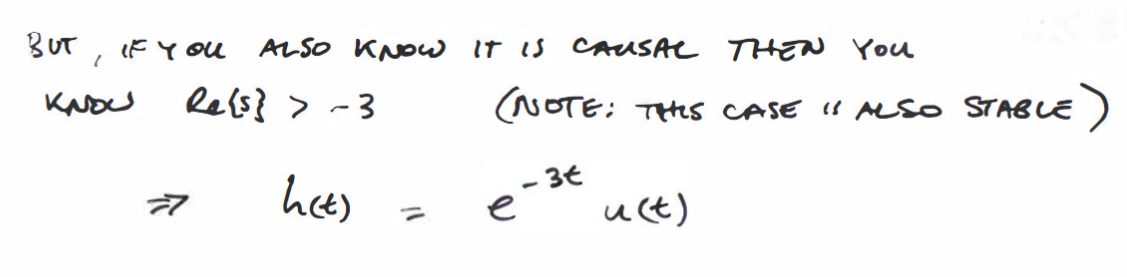 BUT, IF YOU ALSO KNOW IT IS CAUSAL THEN YOU
KNOW Re{s} > -3 (NOTE: THIS CASE IS ALSO STABLE)
⇒ h(t) = e^{-3t} u(t)